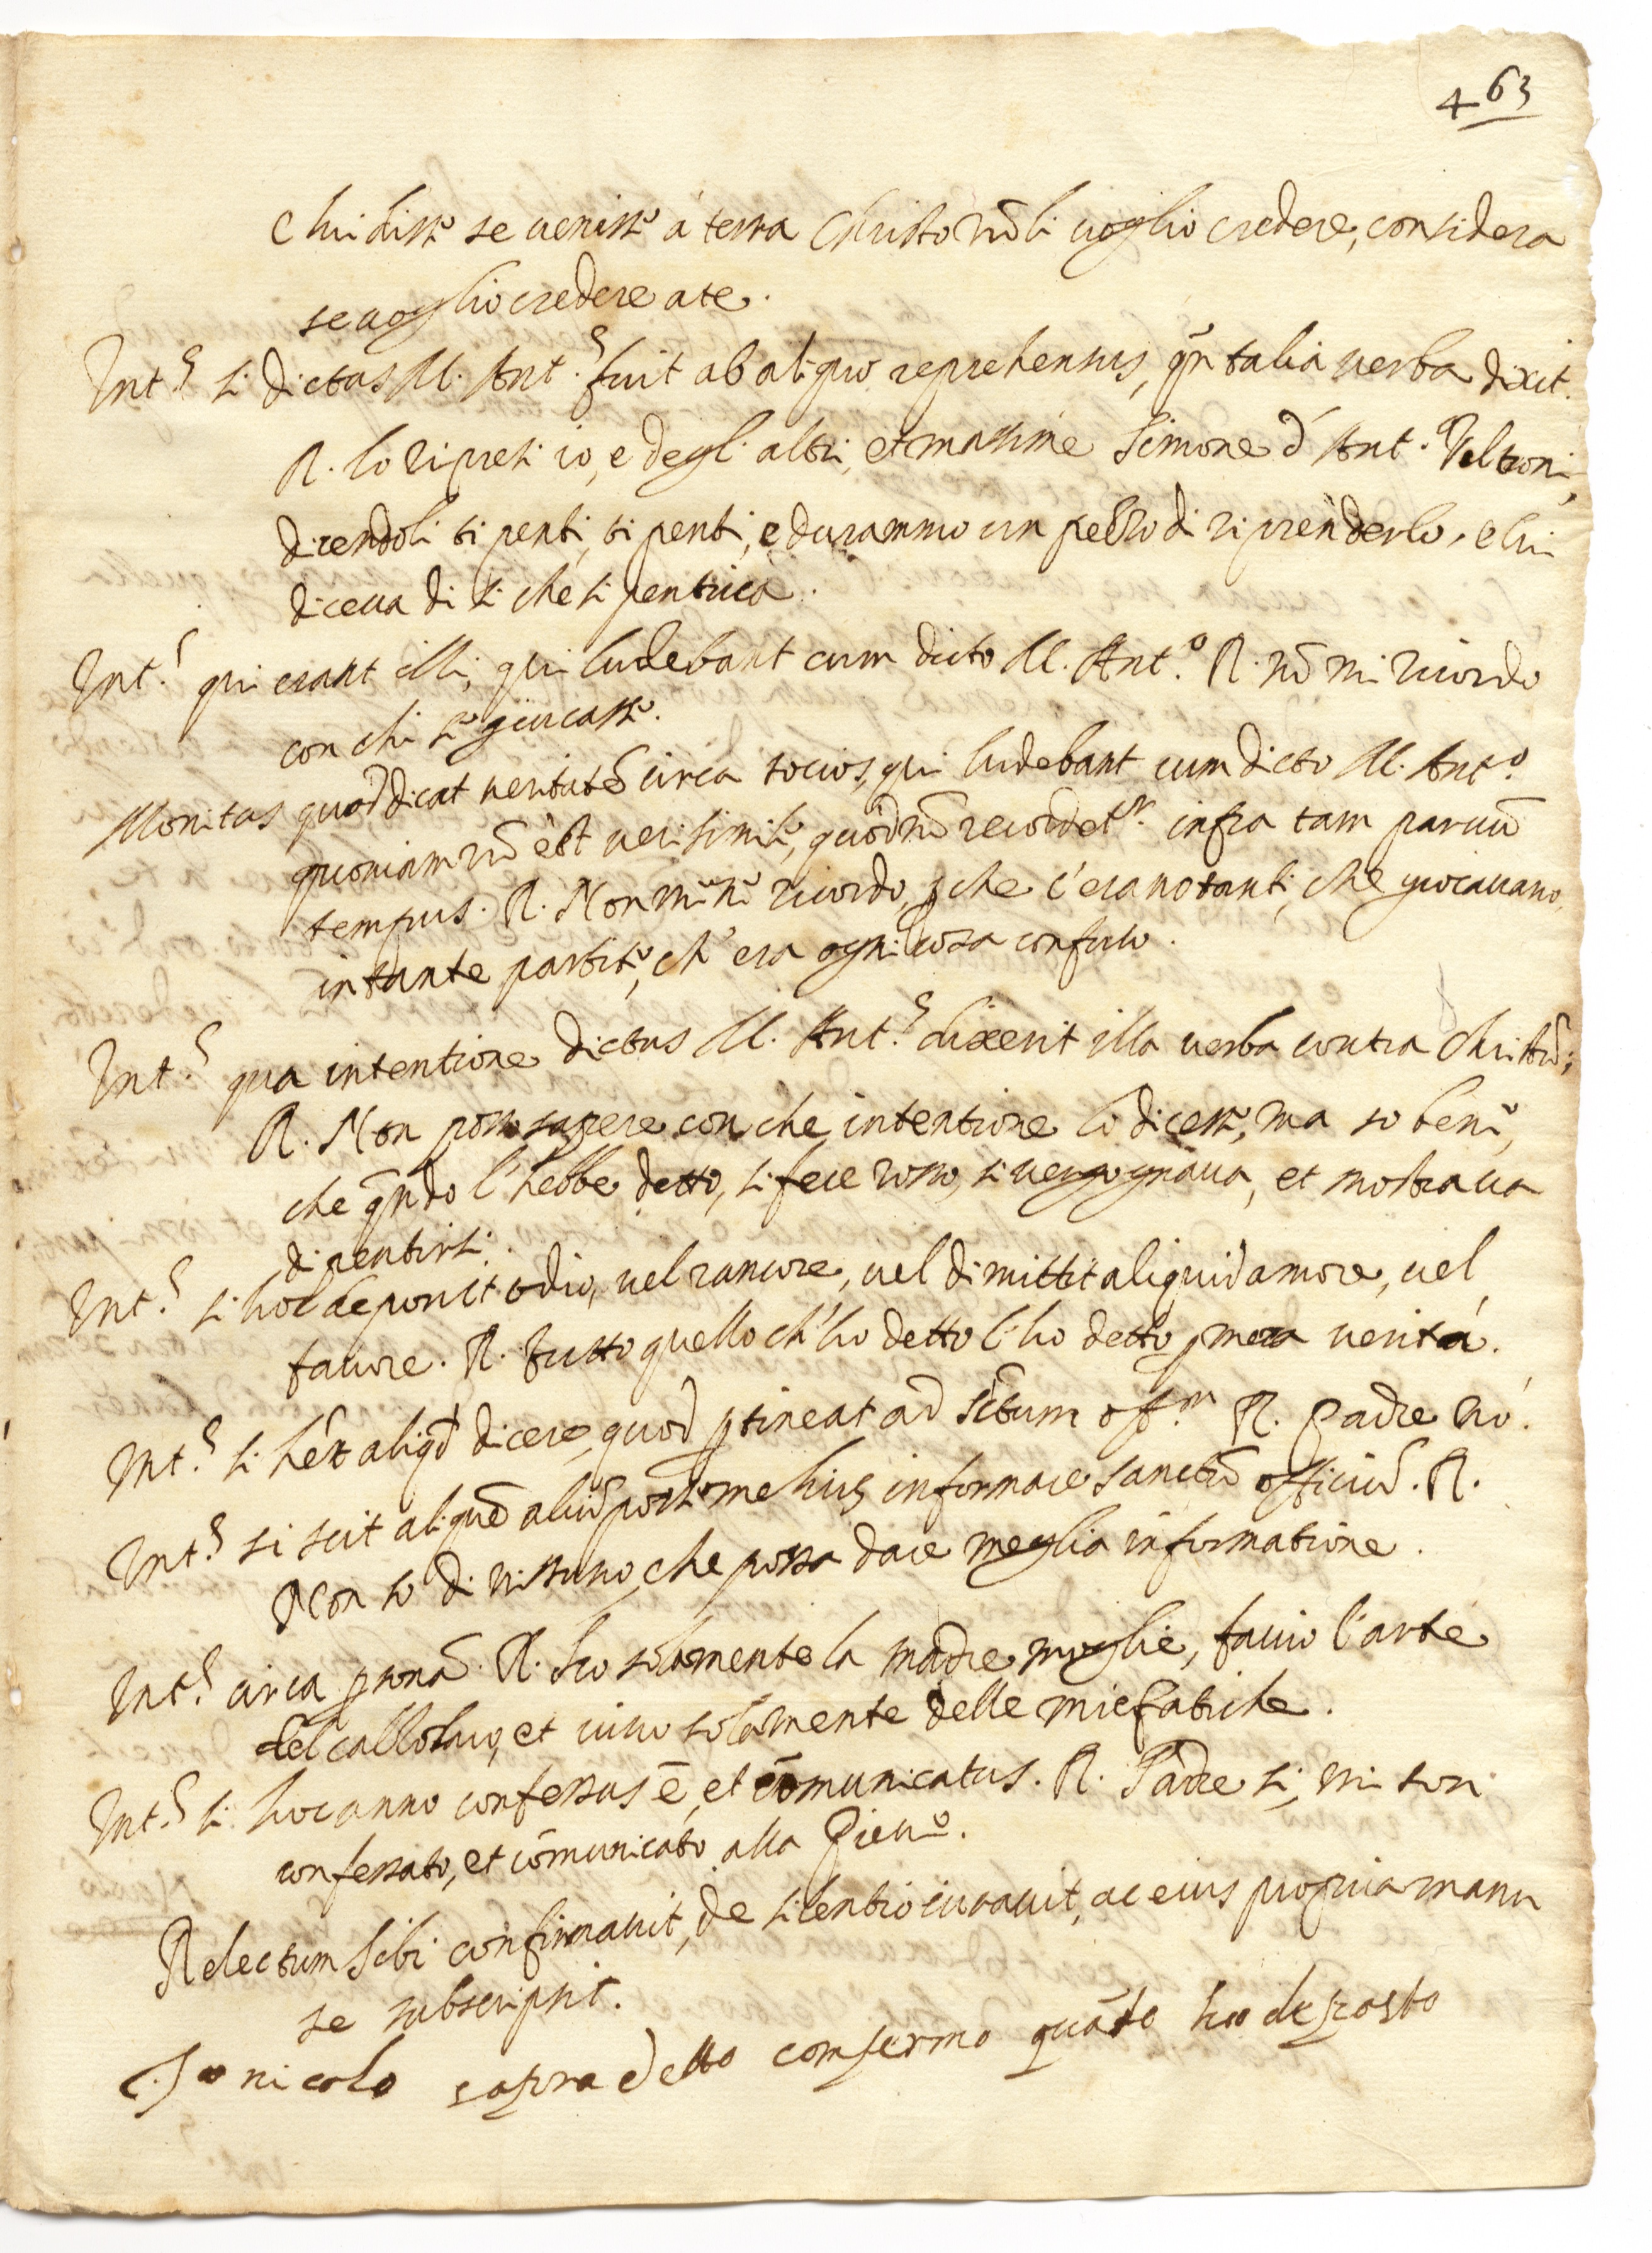 463
e lui disse se venisse à terra Christo nõ li voglio credere, considera
se voglio credere a te.
Int.s si dictus M. Ant.s fuit ab aliquo reprehensus, qñ talia verba dixit.
R. lo ripresi io, e degli altri, et massime Simone d' Ant.o Veltroni,
dicendoli ti penti, ti penti, e durammo un pezzo di riprenderlo, e lui
diceva di si che si pentiva.
Int.s qui erant illi, qui ludebant cum dicto M. Ant.o R. nõ mi ricordo
con chi se giucasse.
Monitus quod dicat veritatē circa socios, qui ludebant cum dicto M. Ant.o
quoniam nõ est verisimile, quod nõ recordetr. infra tam parvũ
tempus. R. Non me ne ricordo, p che c'erano tanti, che giocavano,
in tante partite, ch' era ogni cosa confuso.
Int.s qua intentione dictus M. Ant.s dixerit illa verba contra Christũ;
R. Non posso sapere con che intentione lo dicesse, ma so bene,
che qñdo l'hebbe detto, si fece rosso, si vergognava, et mostrava
di pentirsi.
Int.s si hoc deponit odio, vel rancore, vel dimittit aliquid amore, vel
favore. R. tutto quello ch'ho detto l'ho detto p mera verità.
Int.s si hét aliqd dicere, quod ptineat ad Sctum off.m R. Padre nò.
Int.s si scit aliquē aliũ posse melius informare sanctũ officiũ. R.
Non so di nissuno, che possa dare meglia informatione.
Int.s circa psonã. R. Ho solamente la madre, moglie, faccio l'arte
del calzolaio, et vivo solamente delle mie fatiche.
Int.s si hoc anno confessus ē, et cõmunicatus. R. Padre si, mi son
confessato, et cõmunicato alla Pieve.
Relectum sibi confirmavit, de silentio iuravit, ac eius propria manu
se subscripsit.
Io nicolo sopra detto confermo quãto ho deposto